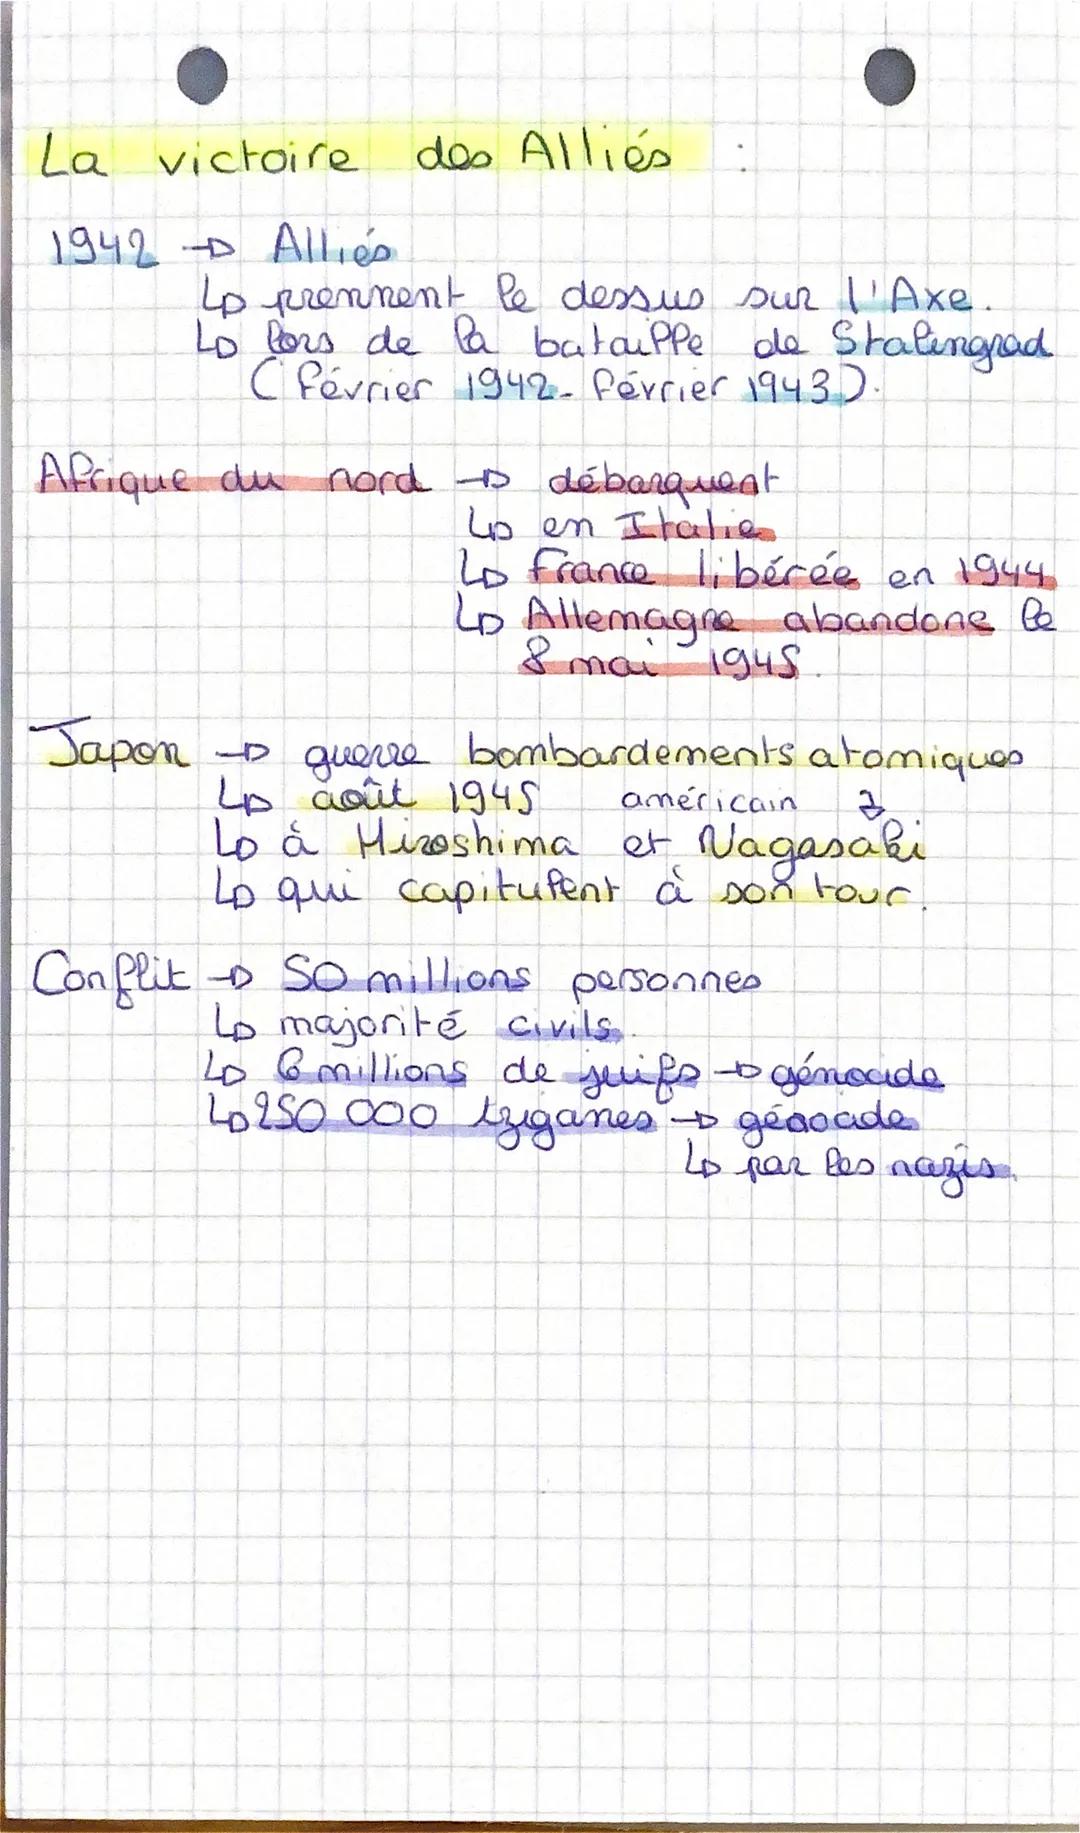 La victoire des Alliés :
1942 → Alliés
↳ prennent le dessus sur l'Axe.
↳ lors de la bataille de Stalingrad
(février 1942 - février 1943).
Afrique du nord → débarquent
↳ en Italie
↳ France libérée en 1944
↳ Allemagne abandone le
8 mai 1945.
Japon → guerre bombardements atomiques
↳ août 1945 américain
↳ à Hiroshima et Nagasaki
↳ qui capitulent à son tour.
Conflit → 50 millions personnes
↳ majorité civils.
↳ 6 millions de juifs → génocide
↳ 250 000 tziganes → génocide
↳ par les nazis.